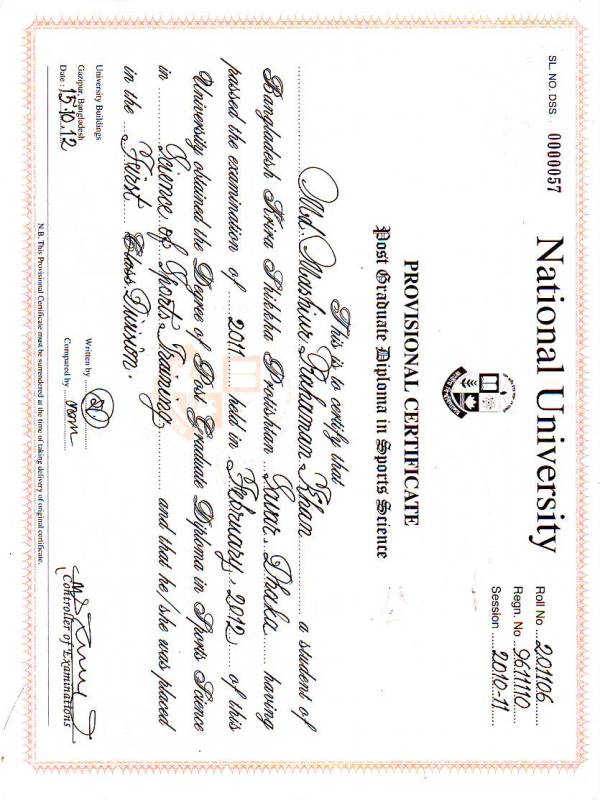 SL. NO. DSS 0000057
National University
Roll No ...201106......
Regn. No ...9611110......
Session ...2010-11......
PROVISIONAL CERTIFICATE
Post Graduate Diploma in Sports Science
This is to certify that
Md. Mashiur Rahaman Khan a student of
Bangladesh Krira Shikkha Protisthan Savar, Dhaka having
passed the examination of 2011 held in February, 2012 of this
University obtained the Degree of Post Graduate Diploma in Sports Science
in Science of Sports Training and that he/she was placed
in the First Class/Division.
University Buildings
Gazipur, Bangladesh
Date : 15.10.12
Written by
Compared by
Controller of Examinations
N.B. This Provisional Certificate must be surrendered at the time of taking delivery of original certificate.